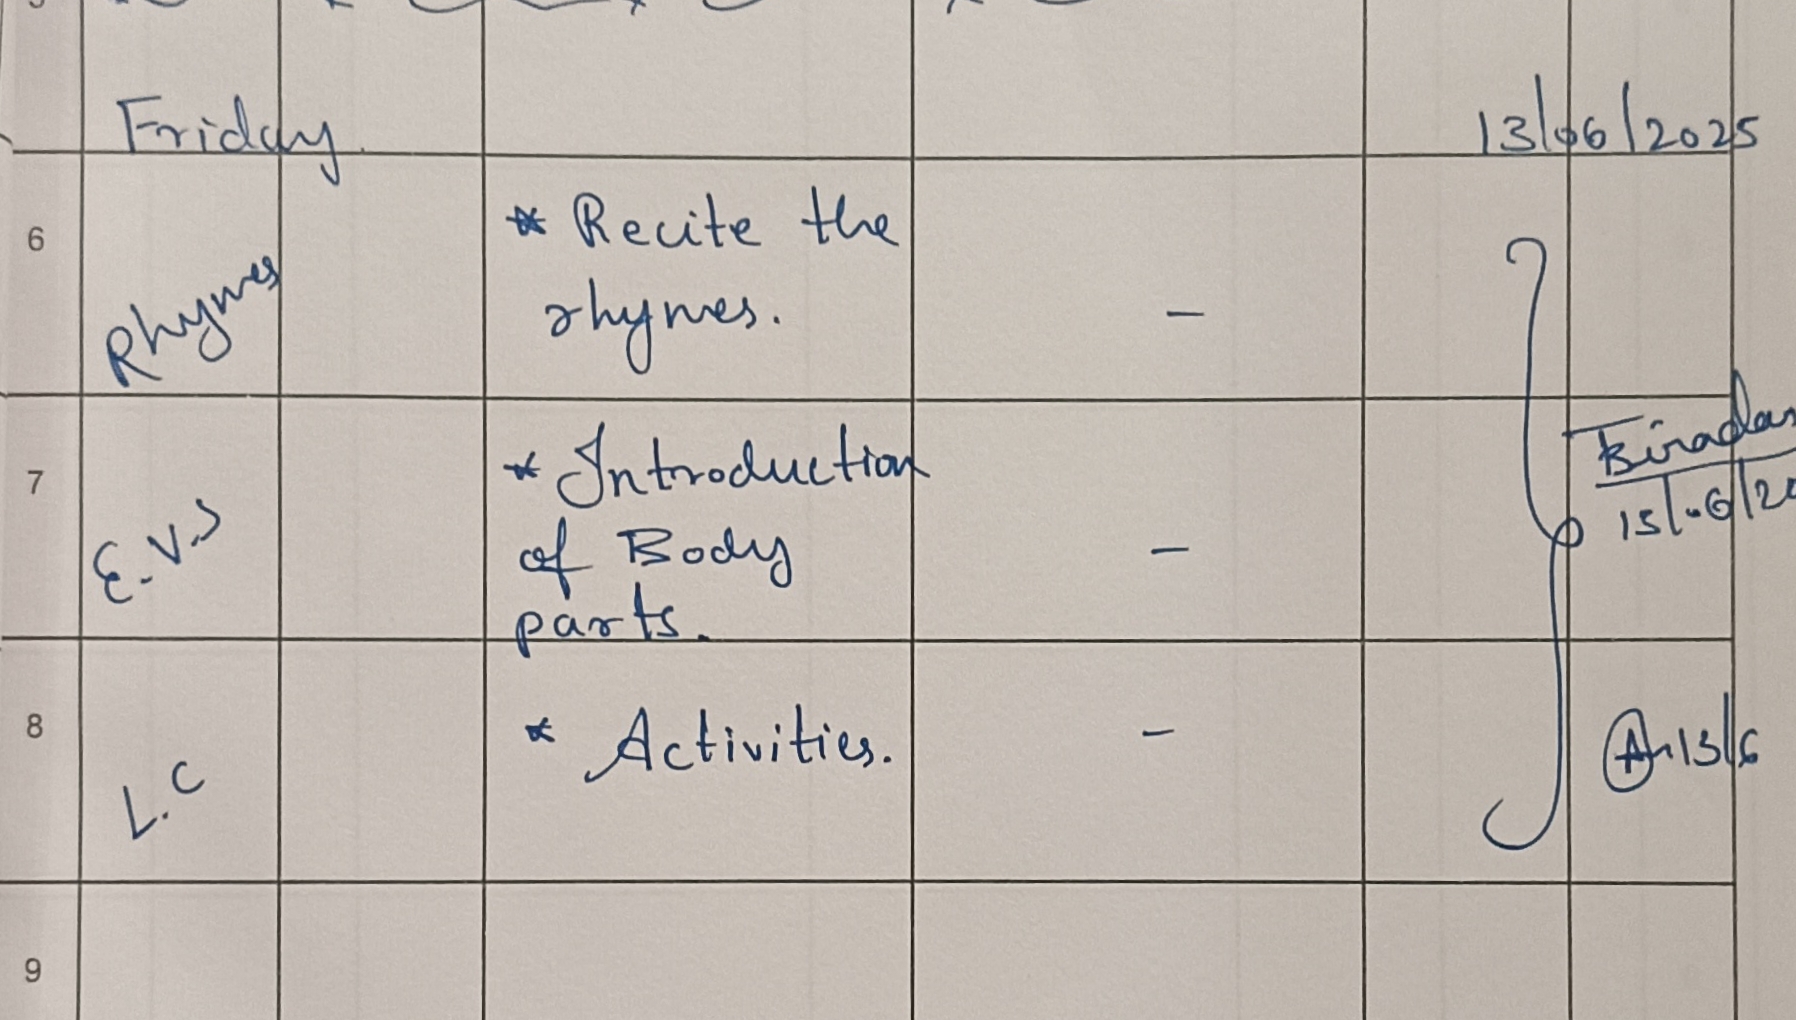 Friday 13/06/2025
6 Rhymes * Recite the
rhymes. -
7 E.V.S * Introduction
of Body -
parts.
8 L.C * Activities. - 13/6
9